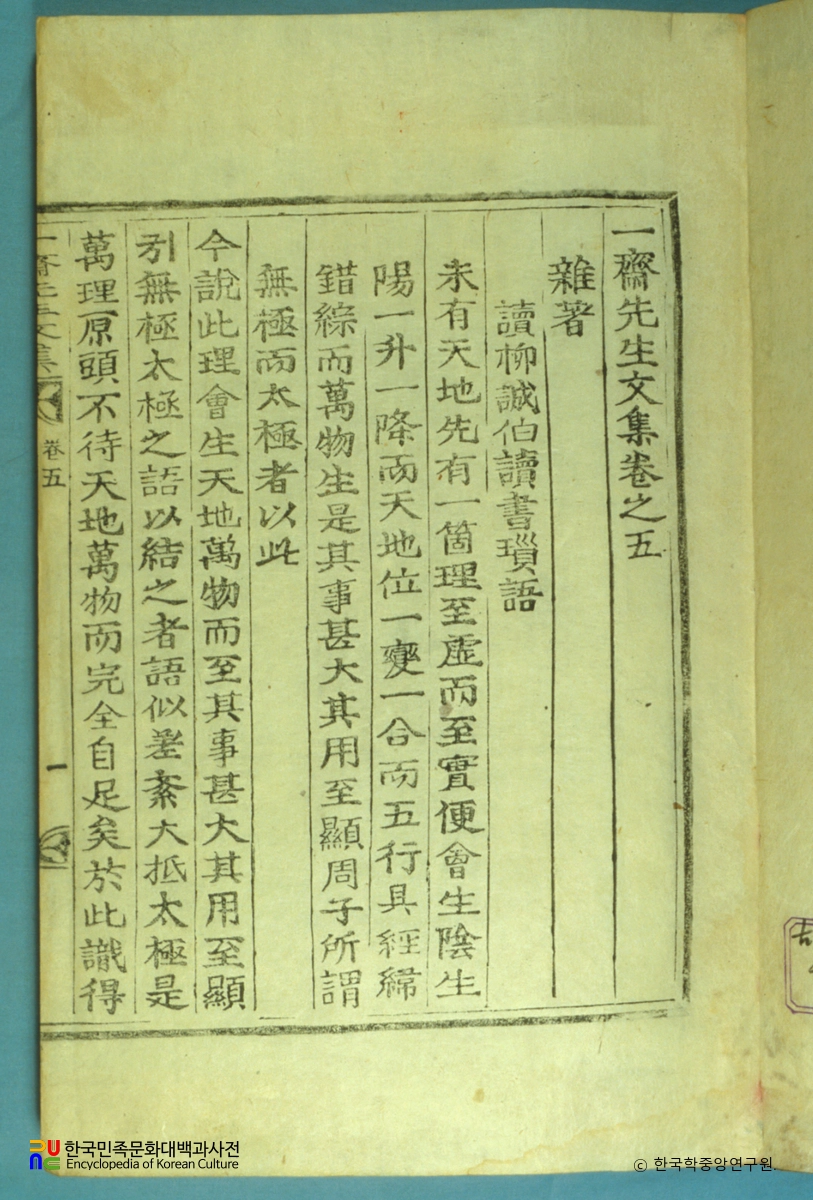 一齋先生文集卷之五
雜著
讀柳誠伯讀書瑣語
未有天地先有一箇理至虛而至實便會生陰生
陽一升一降而天地位一變一合而五行具經緯
錯綜而萬物生是其事甚大其用至顯周子所謂
無極而太極者以此
今說此理會生天地萬物而至其事甚大其用至顯
引無極太極之語以結之者語似差紊大抵太極是
萬理原頭不待天地萬物而完全自足矣於此識得
一齋先生文集
卷五
一
한국민족문화대백과사전
Encyclopedia of Korean Culture
© 한국학중앙연구원.